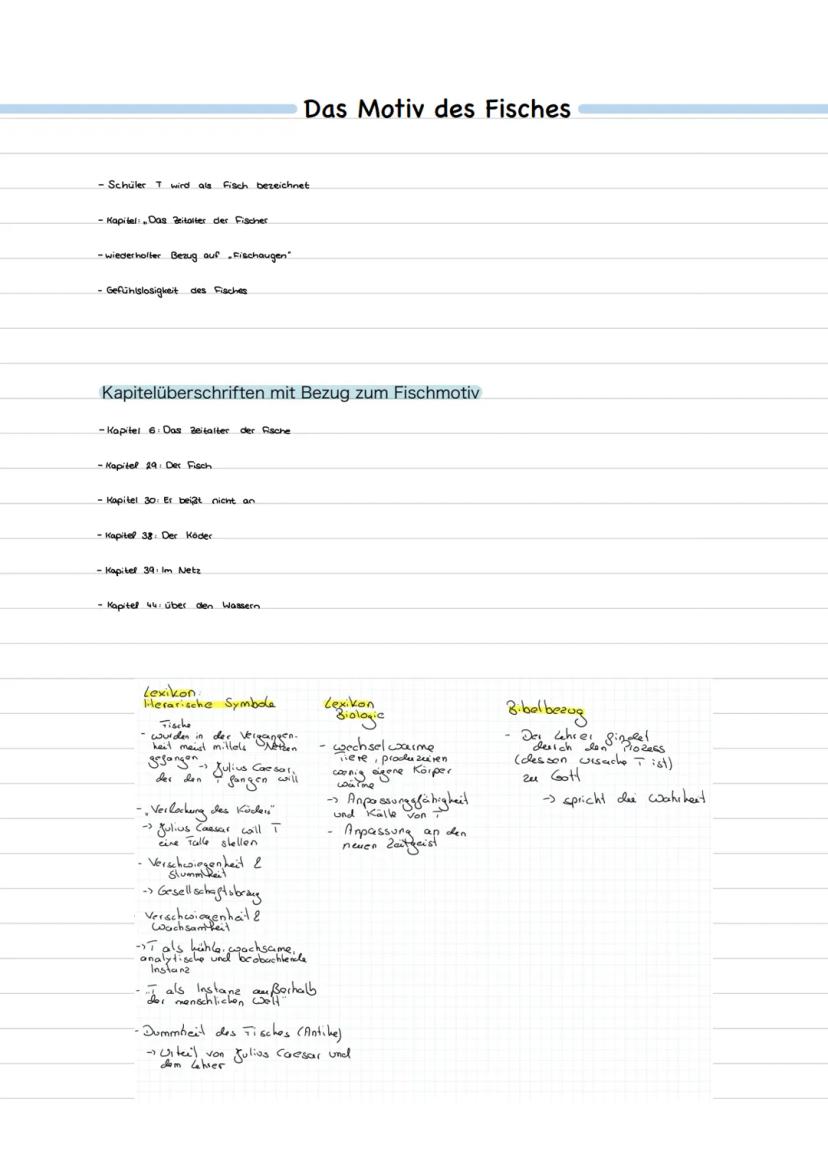 Das Motiv des Fisches
- Schüler T wird als Fisch bezeichnet
- Kapitel: „Das Zeitalter der Fischer
- wiederholter Bezug auf „Fischaugen"
- Gefühlslosigkeit des Fisches
Kapitelüberschriften mit Bezug zum Fischmotiv
- Kapitel 6: Das Zeitalter der Fische
- Kapitel 29: Der Fisch
- Kapitel 30: Er beißt nicht an
- Kapitel 38: Der Köder
- Kapitel 39: Im Netz
- Kapitel 44: über den Wassern
Lexikon:
literarische Symbole
Fische
- wurden in der Vergangen-
heit meist mittels Netzen
gefangen
-> Julius Caesar,
der den T fangen will
- „Verlockung des Köders"
-> Julius Caesar will T
eine Falle stellen
- Verschwiegenheit &
Stummheit
-> Gesellschaftsbezug
Verschwiegenheit &
Wachsamkeit
-> T als kühle, wachsame,
analytische und beobachtende
Instanz
- „T als Instanz außerhalb
der menschlichen Welt"
- Dummheit des Fisches (Antike)
-> Urteil von Julius Caesar und
dem Lehrer
Lexikon
Biologie
- wechselwarme
Tiere, produzieren
wenig eigene Körper
wärme
-> Anpassungsfähigkeit
und Kälte von T
- Anpassung an den
neuen Zeitgeist
Bibelbezug
- Der Lehrer findet
durch den Prozess
(dessen Ursache T ist)
zu Gott
-> spricht die Wahrheit